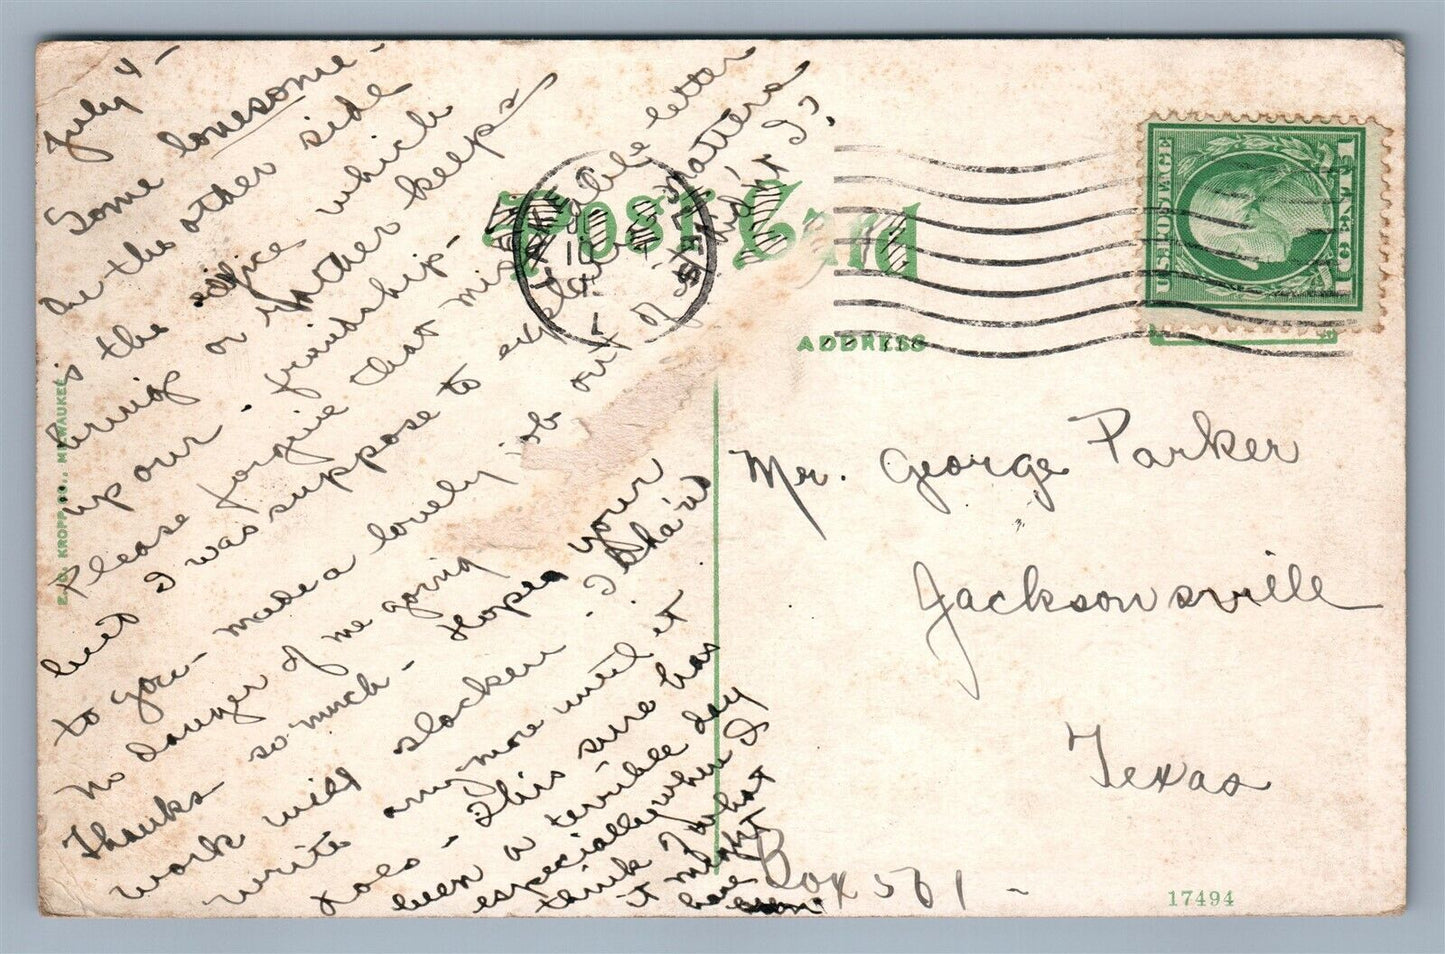 July 4 -
Some lonesome -
On the other side
is the office which
brings or rather keeps
up our friendship -
Please forgive that miserable letter
but I was suppose to explain matters
to you - made a lovely job out of didn't I?
No danger of me going
Thanks so much - Hopes your
work will slacken - I shan't
write anymore until it
does - This sure has
been a terrible day
especially when I
think of what
it might
have
been
POST CARD
ADDRESS
U.S. POSTAGE
1 CENT 1
Mr. George Parker
Jacksonsville
Texas
Box 561 -
17494
E.C. KROPP CO., MILWAUKEE